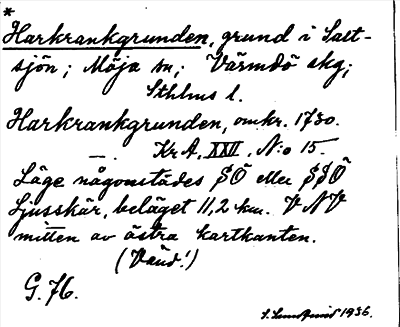 *
Harkrankgrunden, grund i Salt-
sjön; Möja sn; Värmdö skg;
Sthlms l.
Harkrankgrunden, omkr. 1730.
— . Kr A, XXII, N:o 15.
Läge någonstädes SÖ eller SSÖ
Ljusskär, beläget 11,2 km. VNV
mitten av östra kartkanten.
(Vänd!)
G. 76.
1936.